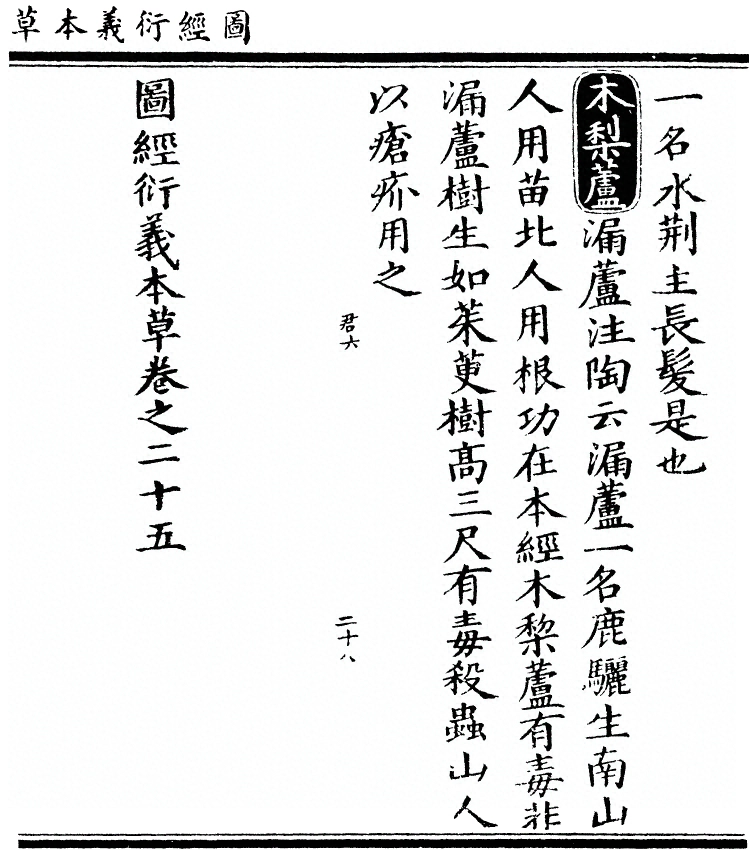 草本義衍經圖
一名水荆主長髮是也
木梨蘆漏蘆注陶云漏蘆一名鹿驪生南山
人用苗北人用根功在本經木梨蘆有毒非
漏蘆樹生如茱萸樹髙三尺有毒殺蟲山人
以瘡疥用之
君六
二十八
圖經衍義本草卷之二十五